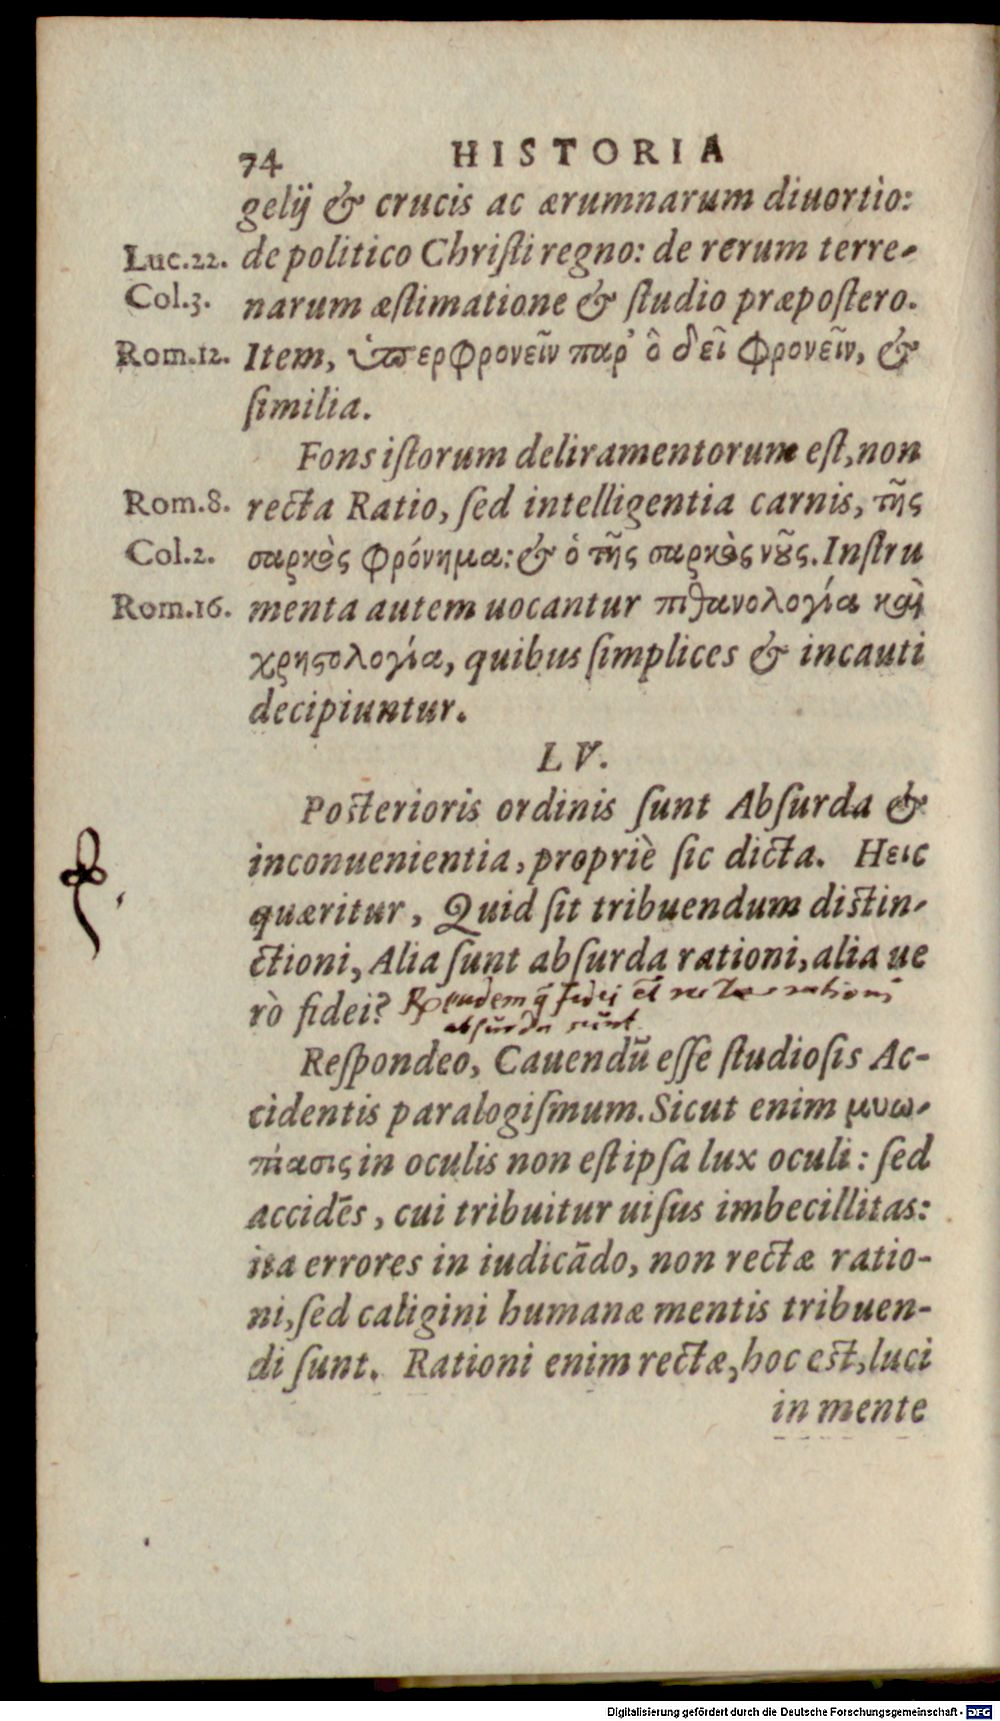 74 HISTORIA
gelij & crucis ac ærumnarum diuortio:
Luc.22. de politico Christi regno: de rerum terre-
Col.3. narum æstimatione & studio præpostero.
Rom.12. Item, ὑπερφρονεῖν παρ' ὃ δεῖ φρονεῖν, &
similia.
Fons istorum deliramentorum est, non
Rom.8. recta Ratio, sed intelligentia carnis, τῆς
Col.2. σαρκὸς φρόνημα: & ὁ τῆς σαρκὸς νοῦς. Instru
Rom.16. menta autem uocantur πιθανολογία καὶ
χρηστολογία, quibus simplices & incauti
decipiuntur.
LV.
Posterioris ordinis sunt Absurda &
inconuenientia, propriè sic dicta. Heic
quæritur, Quid sit tribuendum distin-
ctioni, Alia sunt absurda rationi, alia ue
rò fidei? eadem q̃ fidei et rectae rationi
absurda sunt
Respondeo, Cauendū esse studiosis Ac-
cidentis paralogismum. Sicut enim μυω-
πίασις in oculis non est ipsa lux oculi: sed
accidēs, cui tribuitur uisus imbecillitas:
ita errores in iudicādo, non rectæ ratio-
ni, sed caligini humanæ mentis tribuen-
di sunt. Rationi enim rectæ, hoc est, luci
in mente
Digitalisierung gefördert durch die Deutsche Forschungsgemeinschaft - DFG